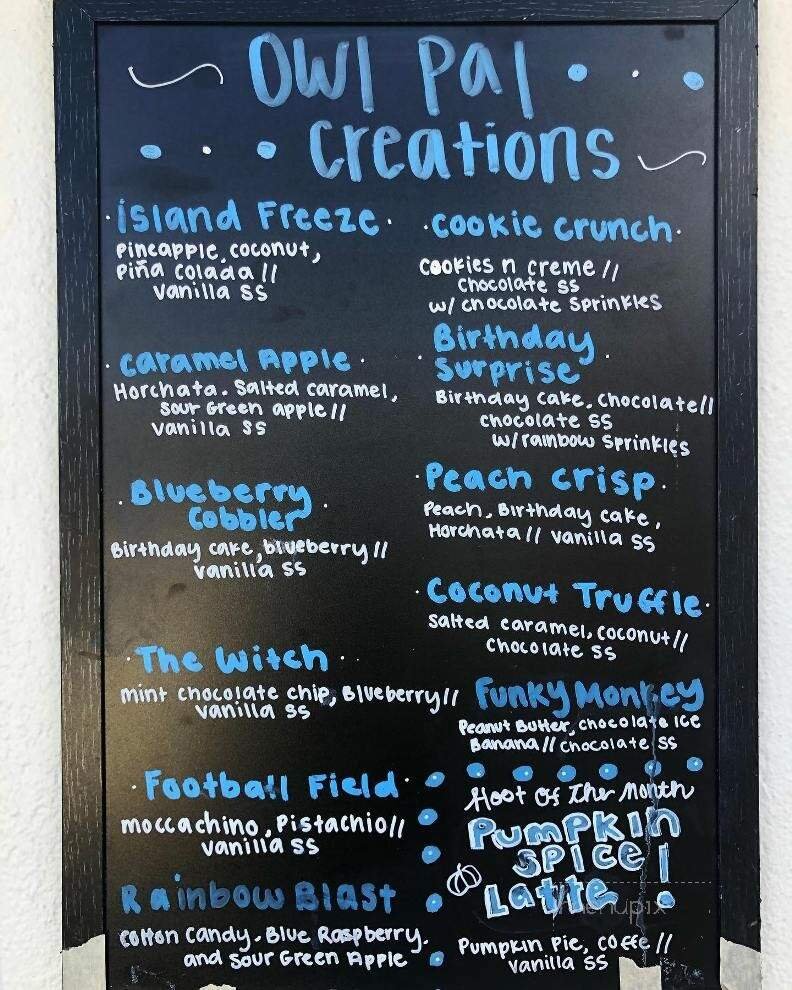 Owl Pal
Creations
Island Freeze
Pineapple, coconut,
Piña Colada //
Vanilla SS
Caramel Apple
Horchata. Salted caramel,
Sour Green apple //
Vanilla SS
Blueberry
Cobbler
Birthday cake, blueberry //
Vanilla SS
The Witch
mint chocolate chip, Blueberry //
Vanilla SS
Football Field
moccachino, Pistachio //
Vanilla SS
Rainbow Blast
Cotton Candy. Blue Raspberry.
and Sour Green Apple
Cookie Crunch
Cookies n creme //
Chocolate SS
w/ chocolate Sprinkles
Birthday
Surprise
Birthday Cake, Chocolate //
chocolate SS
w/ rainbow Sprinkles
Peach Crisp
Peach, Birthday cake,
Horchata // Vanilla SS
Coconut Truffle
Salted caramel, coconut //
Chocolate SS
Funky Monkey
Peanut Butter, chocolate Ice
Banana // Chocolate SS
Hoot Of The Month
Pumpkin
Spice
Latte!
Pumpkin Pie, Coffe //
Vanilla SS
menupix